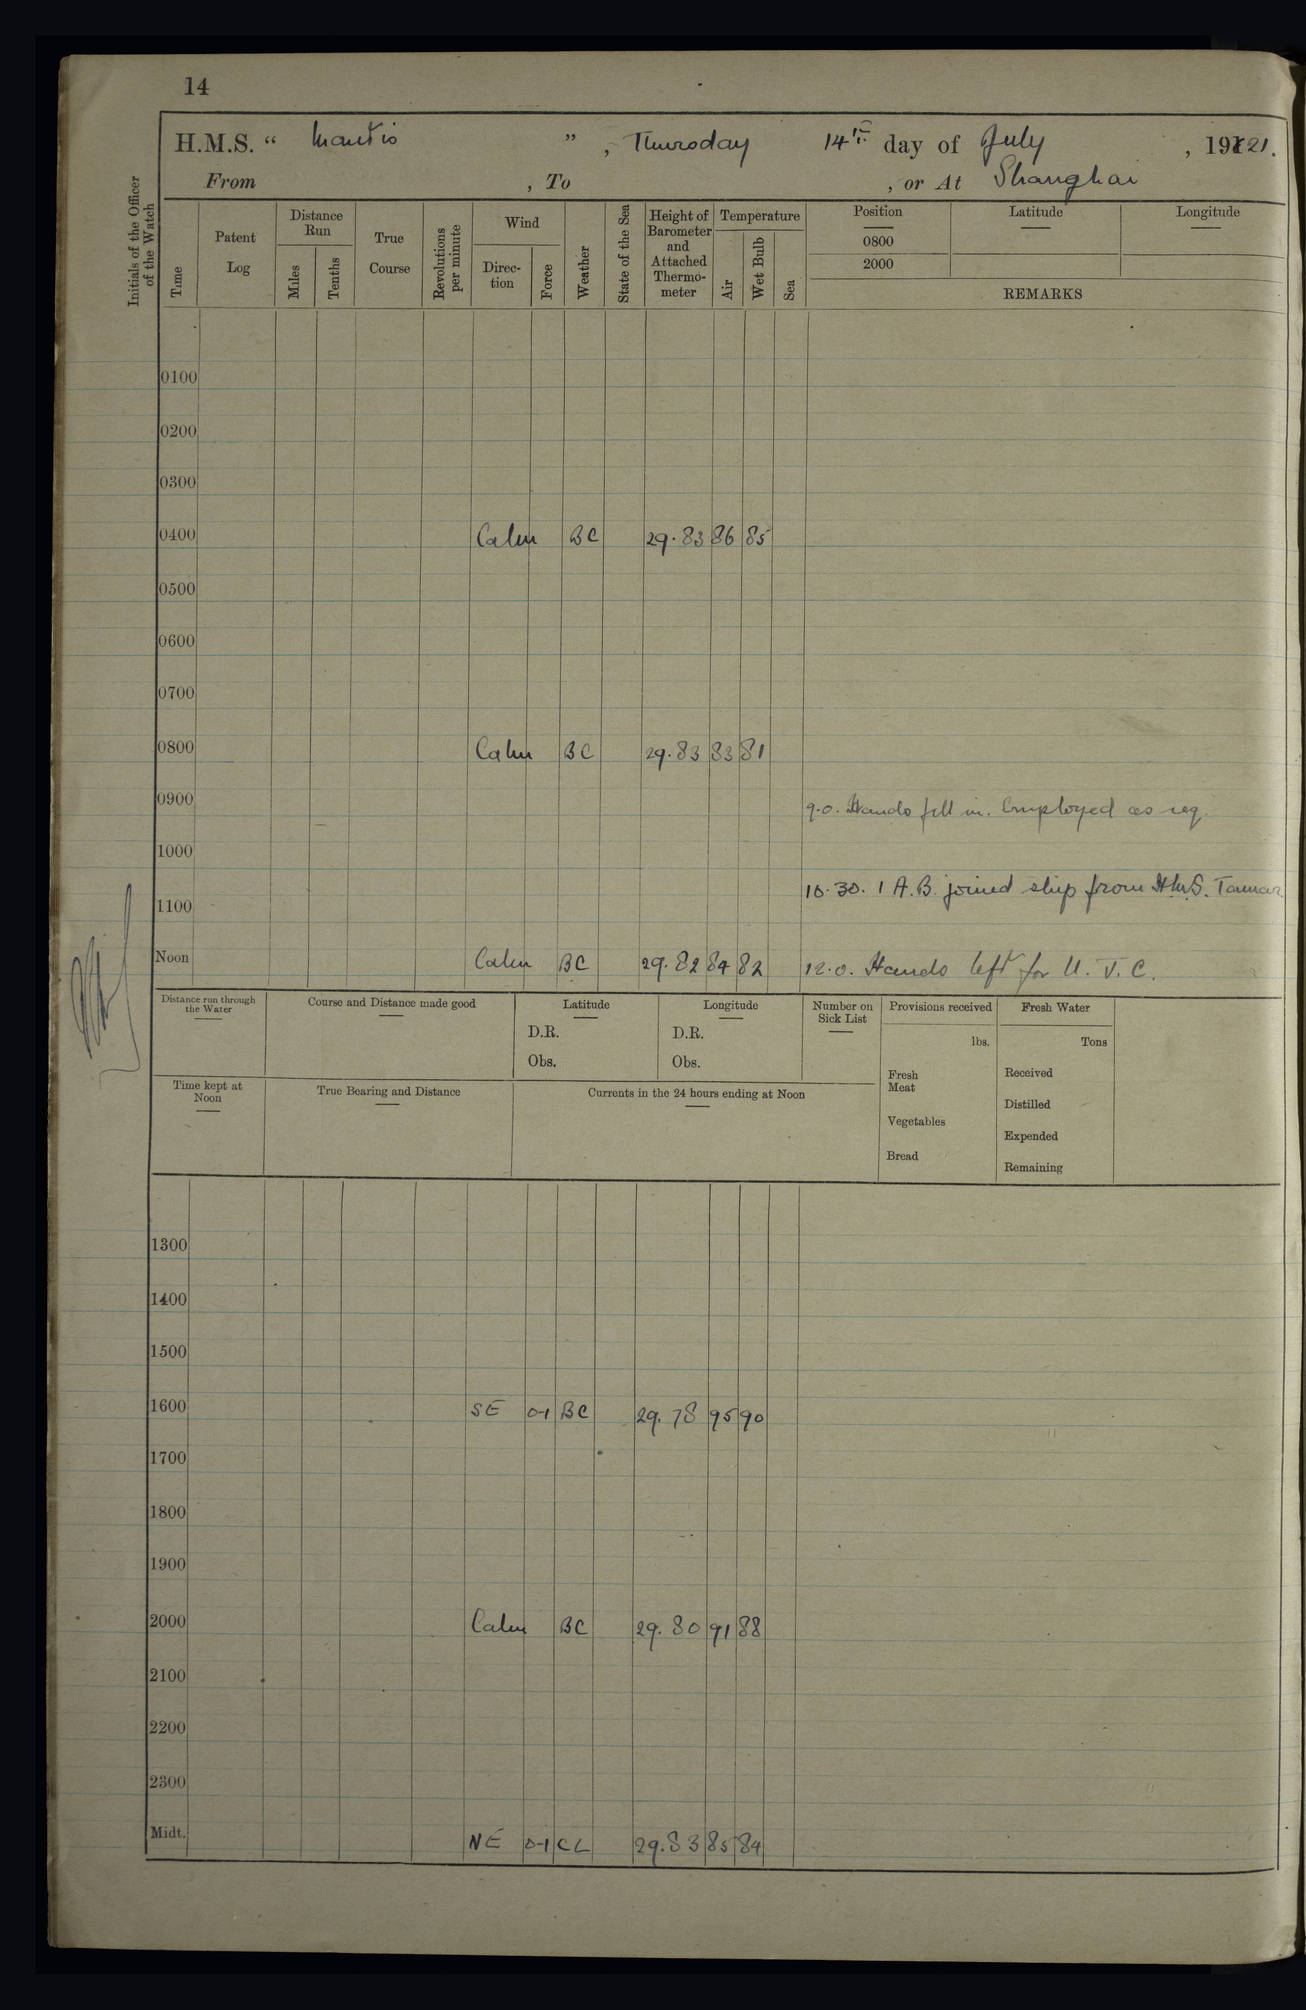 14
H.M.S. “ Mantis ” , Thursday 14th day of July , 1921.
From , To , or At Shanghai
Initials of the Officer of the Watch
Time
Patent Log
Distance Run
Miles
Tenths
True Course
Revolutions per minute
Wind
Direc-tion
Force
Weather
State of the Sea
Height of Barometer and Attached Thermo-meter
Temperature
Air
Wet Bulb
Sea
Position Latitude Longitude
0800
2000
REMARKS
0100
0200
0300
0400 Calm BC 29.83 86 85
0500
0600
0700
0800 Calm BC 29.83 83 81
0900 9.0. Hands fell in. Employed as req.
1000
10.30. 1 A.B. joined ship from H.M.S. Tamar
1100
Noon Calm BC 29.82 84 82 12.0. Hands left for U. J. C.
Distance run through the Water
Course and Distance made good
Latitude
D.R.
Obs.
Longitude
D.R.
Obs.
Number on Sick List
Provisions received
lbs.
Fresh Meat
Vegetables
Bread
Fresh Water
Tons
Received
Distilled
Expended
Remaining
Time kept at Noon
True Bearing and Distance
Currents in the 24 hours ending at Noon
1300
1400
1500
1600 SE 0-1 BC 29.78 95 90
1700
1800
1900
2000 Calm BC 29.80 91 88
2100
2200
2300
Midt. NE 0-1 CL 29.83 85 84